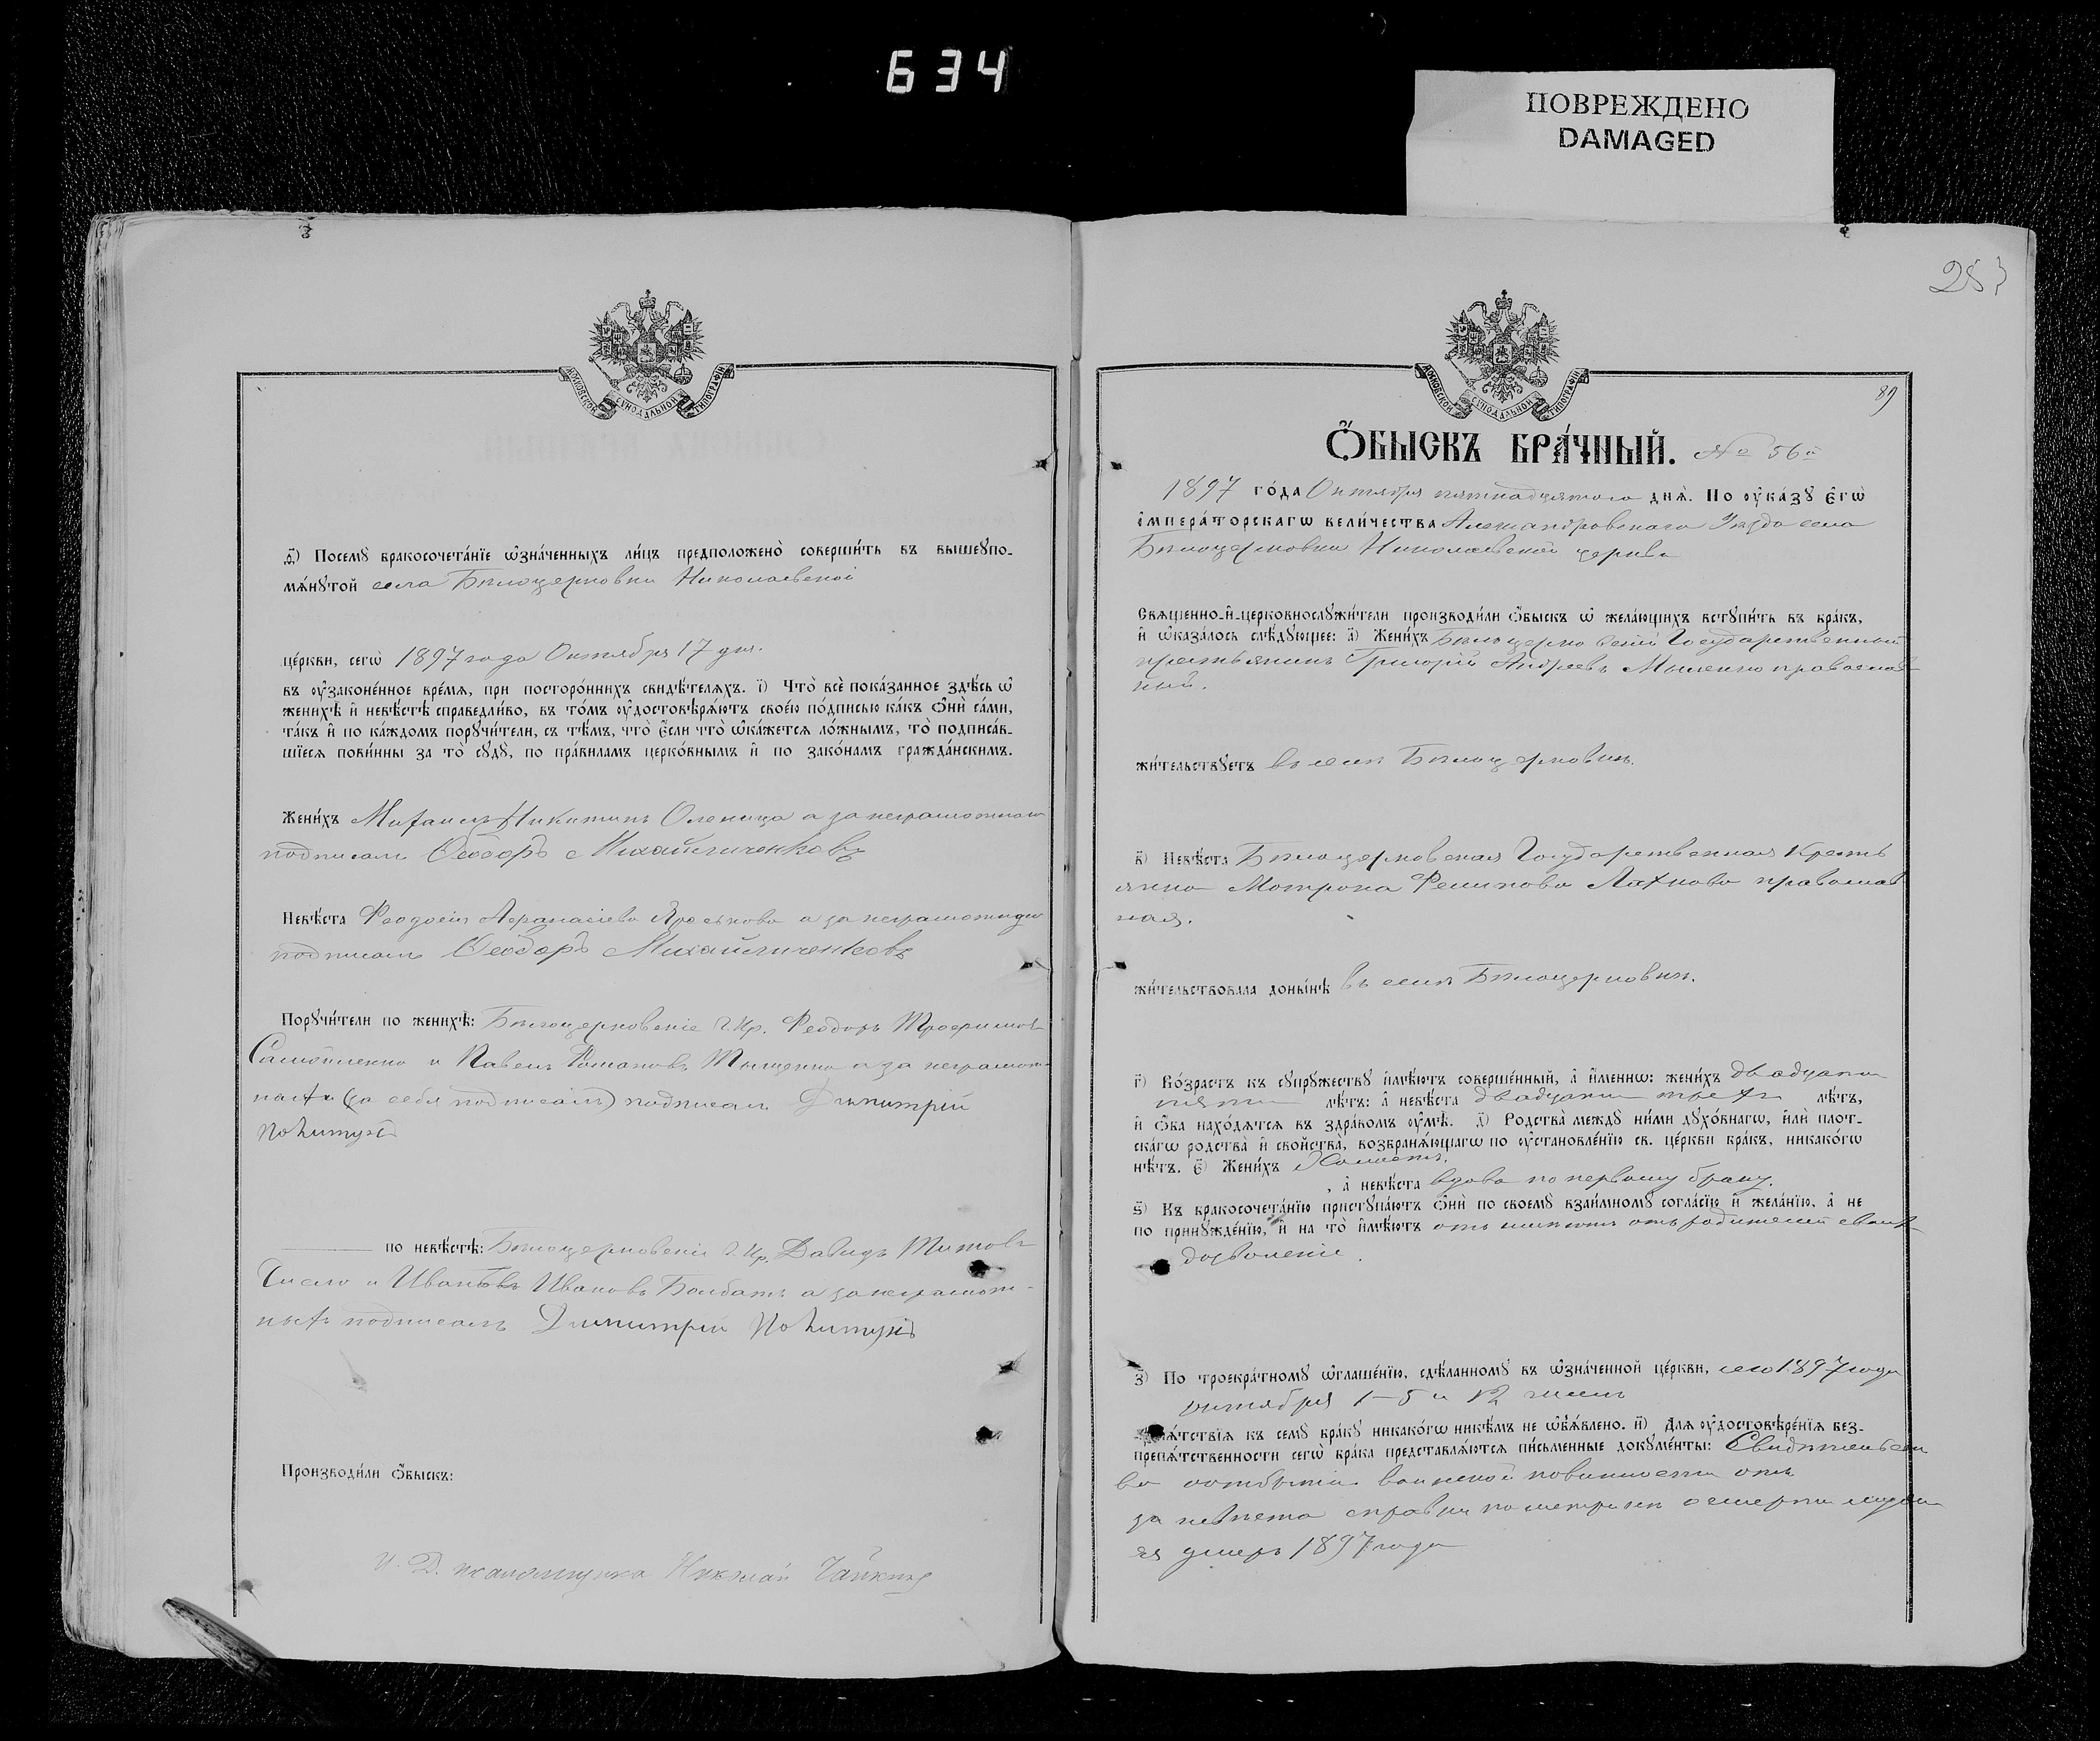 634
ПОВРЕЖДЕНО
DAMAGED
МОСКОВСКОЙ СУНОДАЛЬНОЙ ТИПОГРАФІИ
д҃і) Посемꙋ̀ бракосочета́нїе ѡ҆зна́ченныхъ ли́цъ предположено̀ соверши́ть въ вышеꙋпо-
мѧ́нꙋтой села Бѣлоцерковки Николаевской
це́ркви, сегѡ̀ 1897 года Октября 17 дня.
въ ᲂу҆зако́ненное вре́мѧ, при посторо́ннихъ свидѣ́телѧхъ. і҃) Что̀ всѐ пока́занное здѣ́сь ѡ҆
женихѣ̀ и҆ невѣ́стѣ справедли́во, въ то́мъ ᲂу҆достовѣрѧ́ютъ свое́ю по́дписью ка́къ ѻ҆нѝ са́ми,
та́къ и҆ по ка́ждомъ порꙋчи́тели, съ тѣ́мъ, что̀ є҆́сли что̀ ѡ҆ка́жетсѧ ло́жнымъ, то̀ подписа́в-
шїесѧ пови́нны за то̀ сꙋдꙋ̀, по пра́виламъ церко́внымъ и҆ по зако́намъ гражда́нскимъ.
Жени́хъ Михаилъ Никитинъ Оленица а за неграмотнаго
подписалъ Ѳеодоръ Михайличенковъ
Невѣ́ста Феодосія Афанасіева а за неграмотную
подписалъ Ѳеодоръ Михайличенковъ
Порꙋчи́тели по женихѣ̀: Бѣлоцерковскіе г. кр. Феодоръ Трофимовъ
Самойленко и Павелъ Романовъ Тищенко а за неграмот-
наго (за себя подписалъ) подписалъ Димитрій
по невѣ́стѣ: Бѣлоцерковскіе г. кр. Давидъ Титовъ
и Иванъ Ивановъ а за неграмот-
ныхъ подписалъ Димитрій
Производи́ли ѻ҆́быскъ:
И. Д. псаломщика Николай Чайкинъ
283
МОСКОВСКОЙ СУНОДАЛЬНОЙ ТИПОГРАФІИ
89
Ѻ҆́БЫСКЪ БРА́ЧНЫЙ. № 56й
1897 го́да Октября пятнадцатаго днѧ̀. По ᲂу҆ка́зꙋ Є҆гѡ̀
і҆мпера́торскагѡ вели́чества Александровскаго Уѣзда села
Бѣлоцерковки Николаевской церкви
Свѧще́нно-и҆-церковнослꙋжи́тели производи́ли ѻ҆́быскъ ѡ҆ жела́ющихъ встꙋпи́ть въ бра́къ,
и҆ ѡ҆каза́лось слѣ́дꙋющее: а҃) Жени́хъ Бѣлоцерковскій Государственный
крестьянинъ Григорій Андреевъ православ
ный.
жи́тельствꙋетъ въ селѣ Бѣлоцерковкѣ.
в҃) Невѣ́ста Бѣлоцерковская Государственная Кресть
янка Мотрона Филипова Лахнова православ
ная.
жи́тельствовала доны́нѣ въ селѣ Бѣлоцерковкѣ.
г҃) Во́зрастъ къ сꙋпрꙋ́жествꙋ и҆мѣ́ютъ соверше́нный, а҆ и҆́меннѡ: жени́хъ двадцати
пяти лѣ́тъ: а҆ невѣ́ста двадцати трехъ лѣ́тъ,
и҆ ѻ҆́ба нахо́дѧтсѧ въ здра́вомъ ᲂу҆мѣ̀. д҃) Родства̀ междꙋ̀ ни́ми дꙋхо́внагѡ, и҆лѝ плот-
ска́гѡ родства̀ и҆ свойства̀, возбранѧ́ющагѡ по ᲂу҆становле́нїю св. це́ркви бра́къ, никако́гѡ
нѣ́тъ. є҃) Жени́хъ Холостъ,
, а҆ невѣ́ста вдова по первому браку.
ѕ҃) Къ бракосочета́нїю пристꙋпа́ютъ ѻ҆нѝ по своемꙋ̀ взаи́мномꙋ согла́сїю и҆ жела́нїю, а҆ не
по принꙋжде́нїю, и҆ на то̀ и҆мѣ́ютъ отъ родителей своихъ
дозволеніе.
з҃) По троекра́тномꙋ ѡ҆глаше́нїю, сдѣ́ланномꙋ въ ѡ҆зна́ченной це́ркви, сего 1897 года
октября 1-5 и 12 числъ
препѧ́тствїѧ къ семꙋ̀ бра́кꙋ никако́гѡ никѣ́мъ не ѡ҆б̾ѧ́влено. и҃) Длѧ ᲂу҆достовѣре́нїѧ без-
препѧ́тственности сегѡ̀ бра́ка представлѧ́ютсѧ пи́сьменные докꙋме́нты: Свидѣтельст
во воинской повинности
по метрикѣ о смерти
умеръ 1897 года